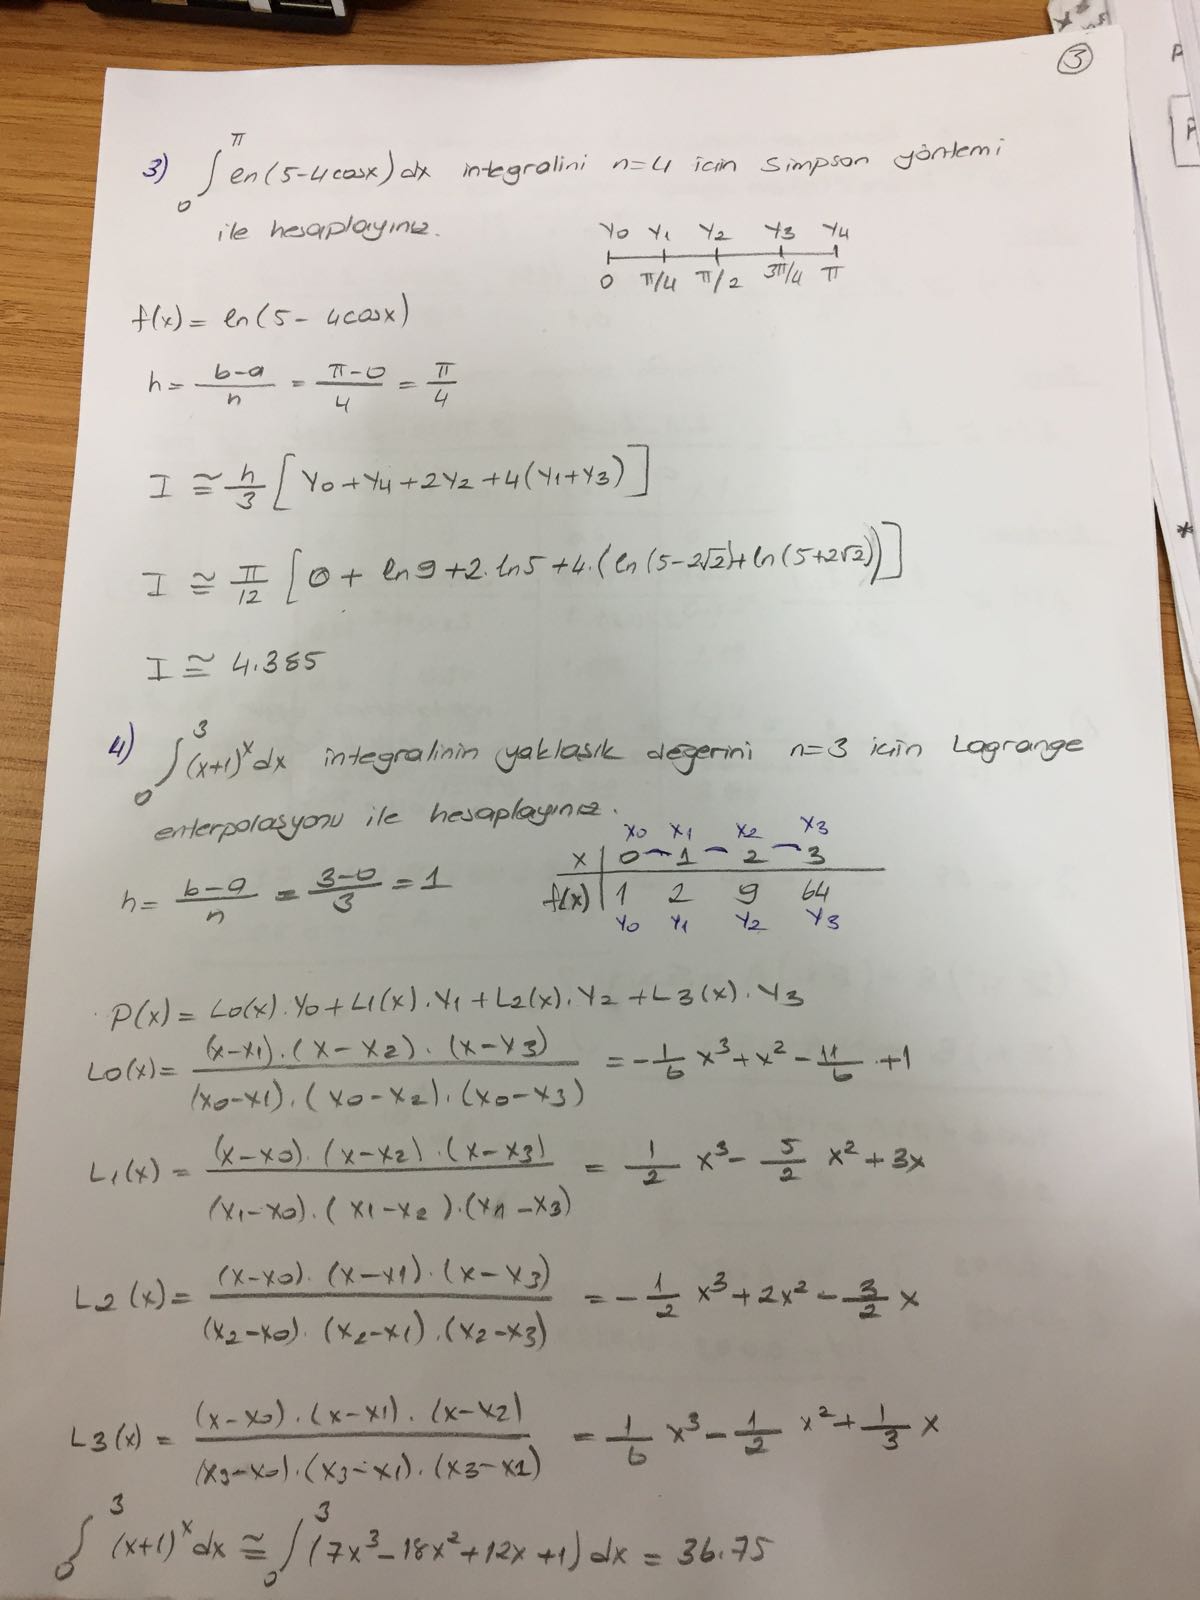 ③
3) ∫₀^π ln(5-4cosx)dx integralini n=4 icin Simpson yöntemi
ile hesaplayınız.
Y0 Y1 Y2 Y3 Y4
0 π/4 π/2 3π/4 π
f(x) = ln(5-4cosx)
h = (b-a)/n = (π-0)/4 = π/4
I ≅ h/3 [Y0+Y4+2Y2+4(Y1+Y3)]
I ≅ π/12 [0 + ln9+2.ln5+4.(ln(5-2√2)+ln(5+2√2))]
I ≅ 4.385
4) ∫₀³ (x+1)^x dx integralinin yaklaşık değerini n=3 icin Lagrange
enterpolasyonu ile hesaplayınız.
x0 x1 x2 x3
x | 0 1 2 3
h = (b-a)/n = (3-0)/3 = 1
f(x) | 1 2 9 64
Y0 Y1 Y2 Y3
P(x) = L0(x).Y0+L1(x).Y1+L2(x).Y2+L3(x).Y3
L0(x) = (x-x1).(x-x2).(x-x3) / (x0-x1).(x0-x2).(x0-x3) = -1/6 x³+x²-11/6 +1
L1(x) = (x-x0).(x-x2).(x-x3) / (x1-x0).(x1-x2).(x1-x3) = 1/2 x³ - 5/2 x²+3x
L2(x) = (x-x0).(x-x1).(x-x3) / (x2-x0).(x2-x1).(x2-x3) = -1/2 x³+2x²-3/2 x
L3(x) = (x-x0).(x-x1).(x-x2) / (x3-x0).(x3-x1).(x3-x1) = 1/6 x³-1/2 x²+1/3 x
∫₀³ (x+1)^x dx ≅ ∫₀³ (7x³-18x²+12x+1)dx = 36.75